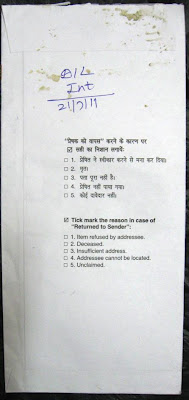 Int
21/7/11
"प्रेषक को वापस" करने के कारण पर
☑ सही का निशान लगायें:
☐ 1. प्रेषिती ने स्वीकार करने से मना कर दिया।
☐ 2. मृत।
☐ 3. पता पूरा नहीं है।
☐ 4. प्रेषिती नहीं पाया गया।
☐ 5. कोई दावेदार नहीं।
☑ Tick mark the reason in case of
"Returned to Sender":
☐ 1. Item refused by addressee.
☐ 2. Deceased.
☐ 3. Insufficient address.
☐ 4. Addressee cannot be located.
☐ 5. Unclaimed.